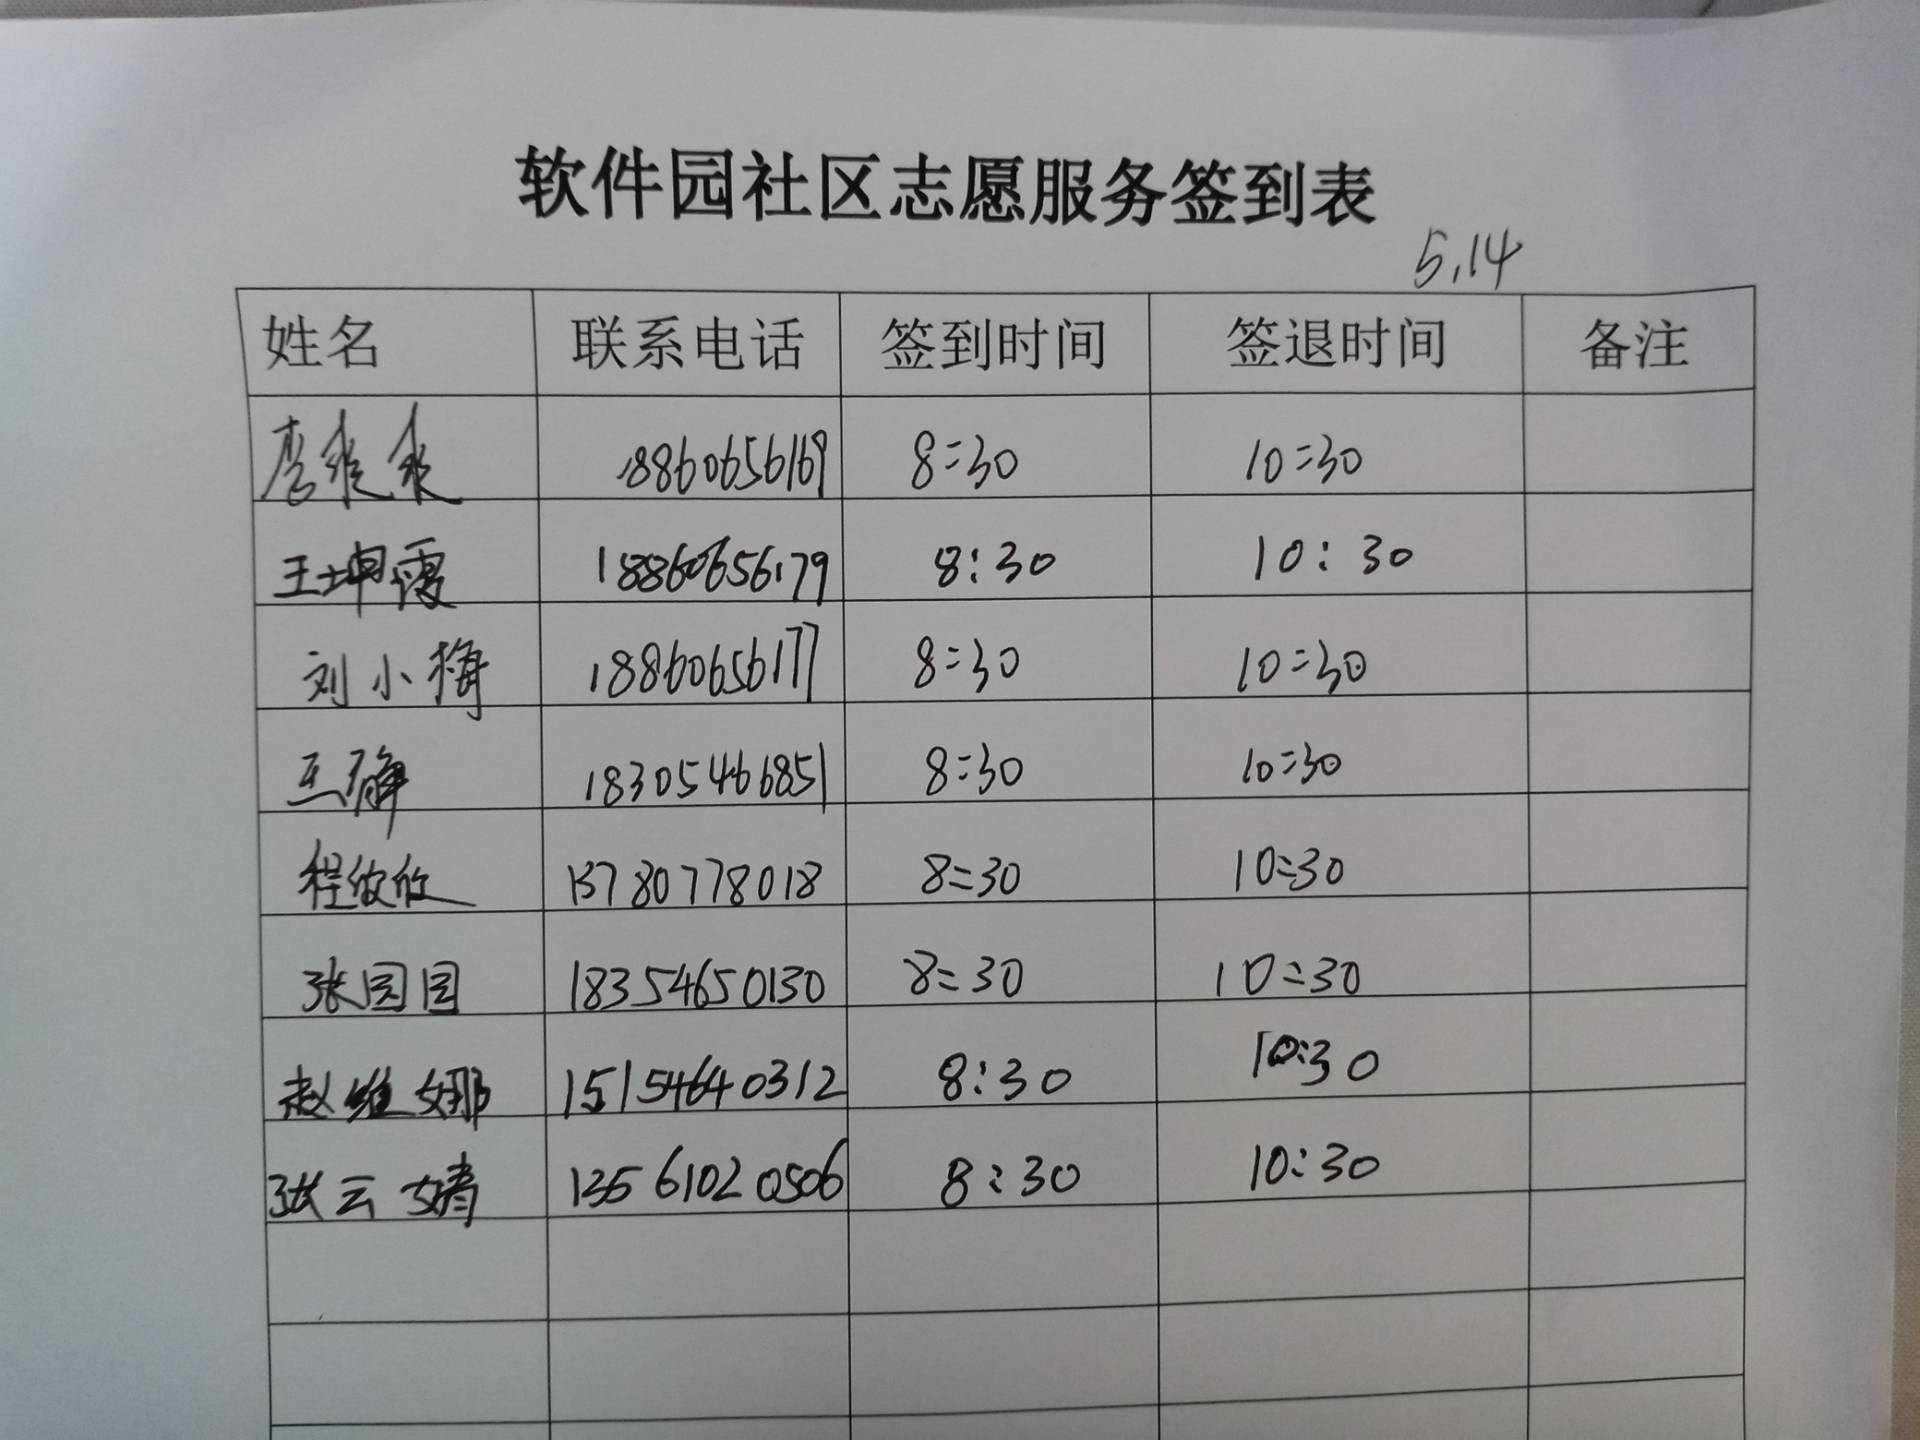 软件园社区志愿服务签到表
5.14
姓名 联系电话 签到时间 签退时间 备注
李 18860656169 8:30 10:30
王坤霞 18860656179 8:30 10:30
刘小梅 18860656177 8:30 10:30
王 18305466851 8:30 10:30
程欣欣 13780778018 8:30 10:30
张园园 18354650130 8:30 10:30
赵维娜 15154640312 8:30 10:30
张云婧 13561020506 8:30 10:30